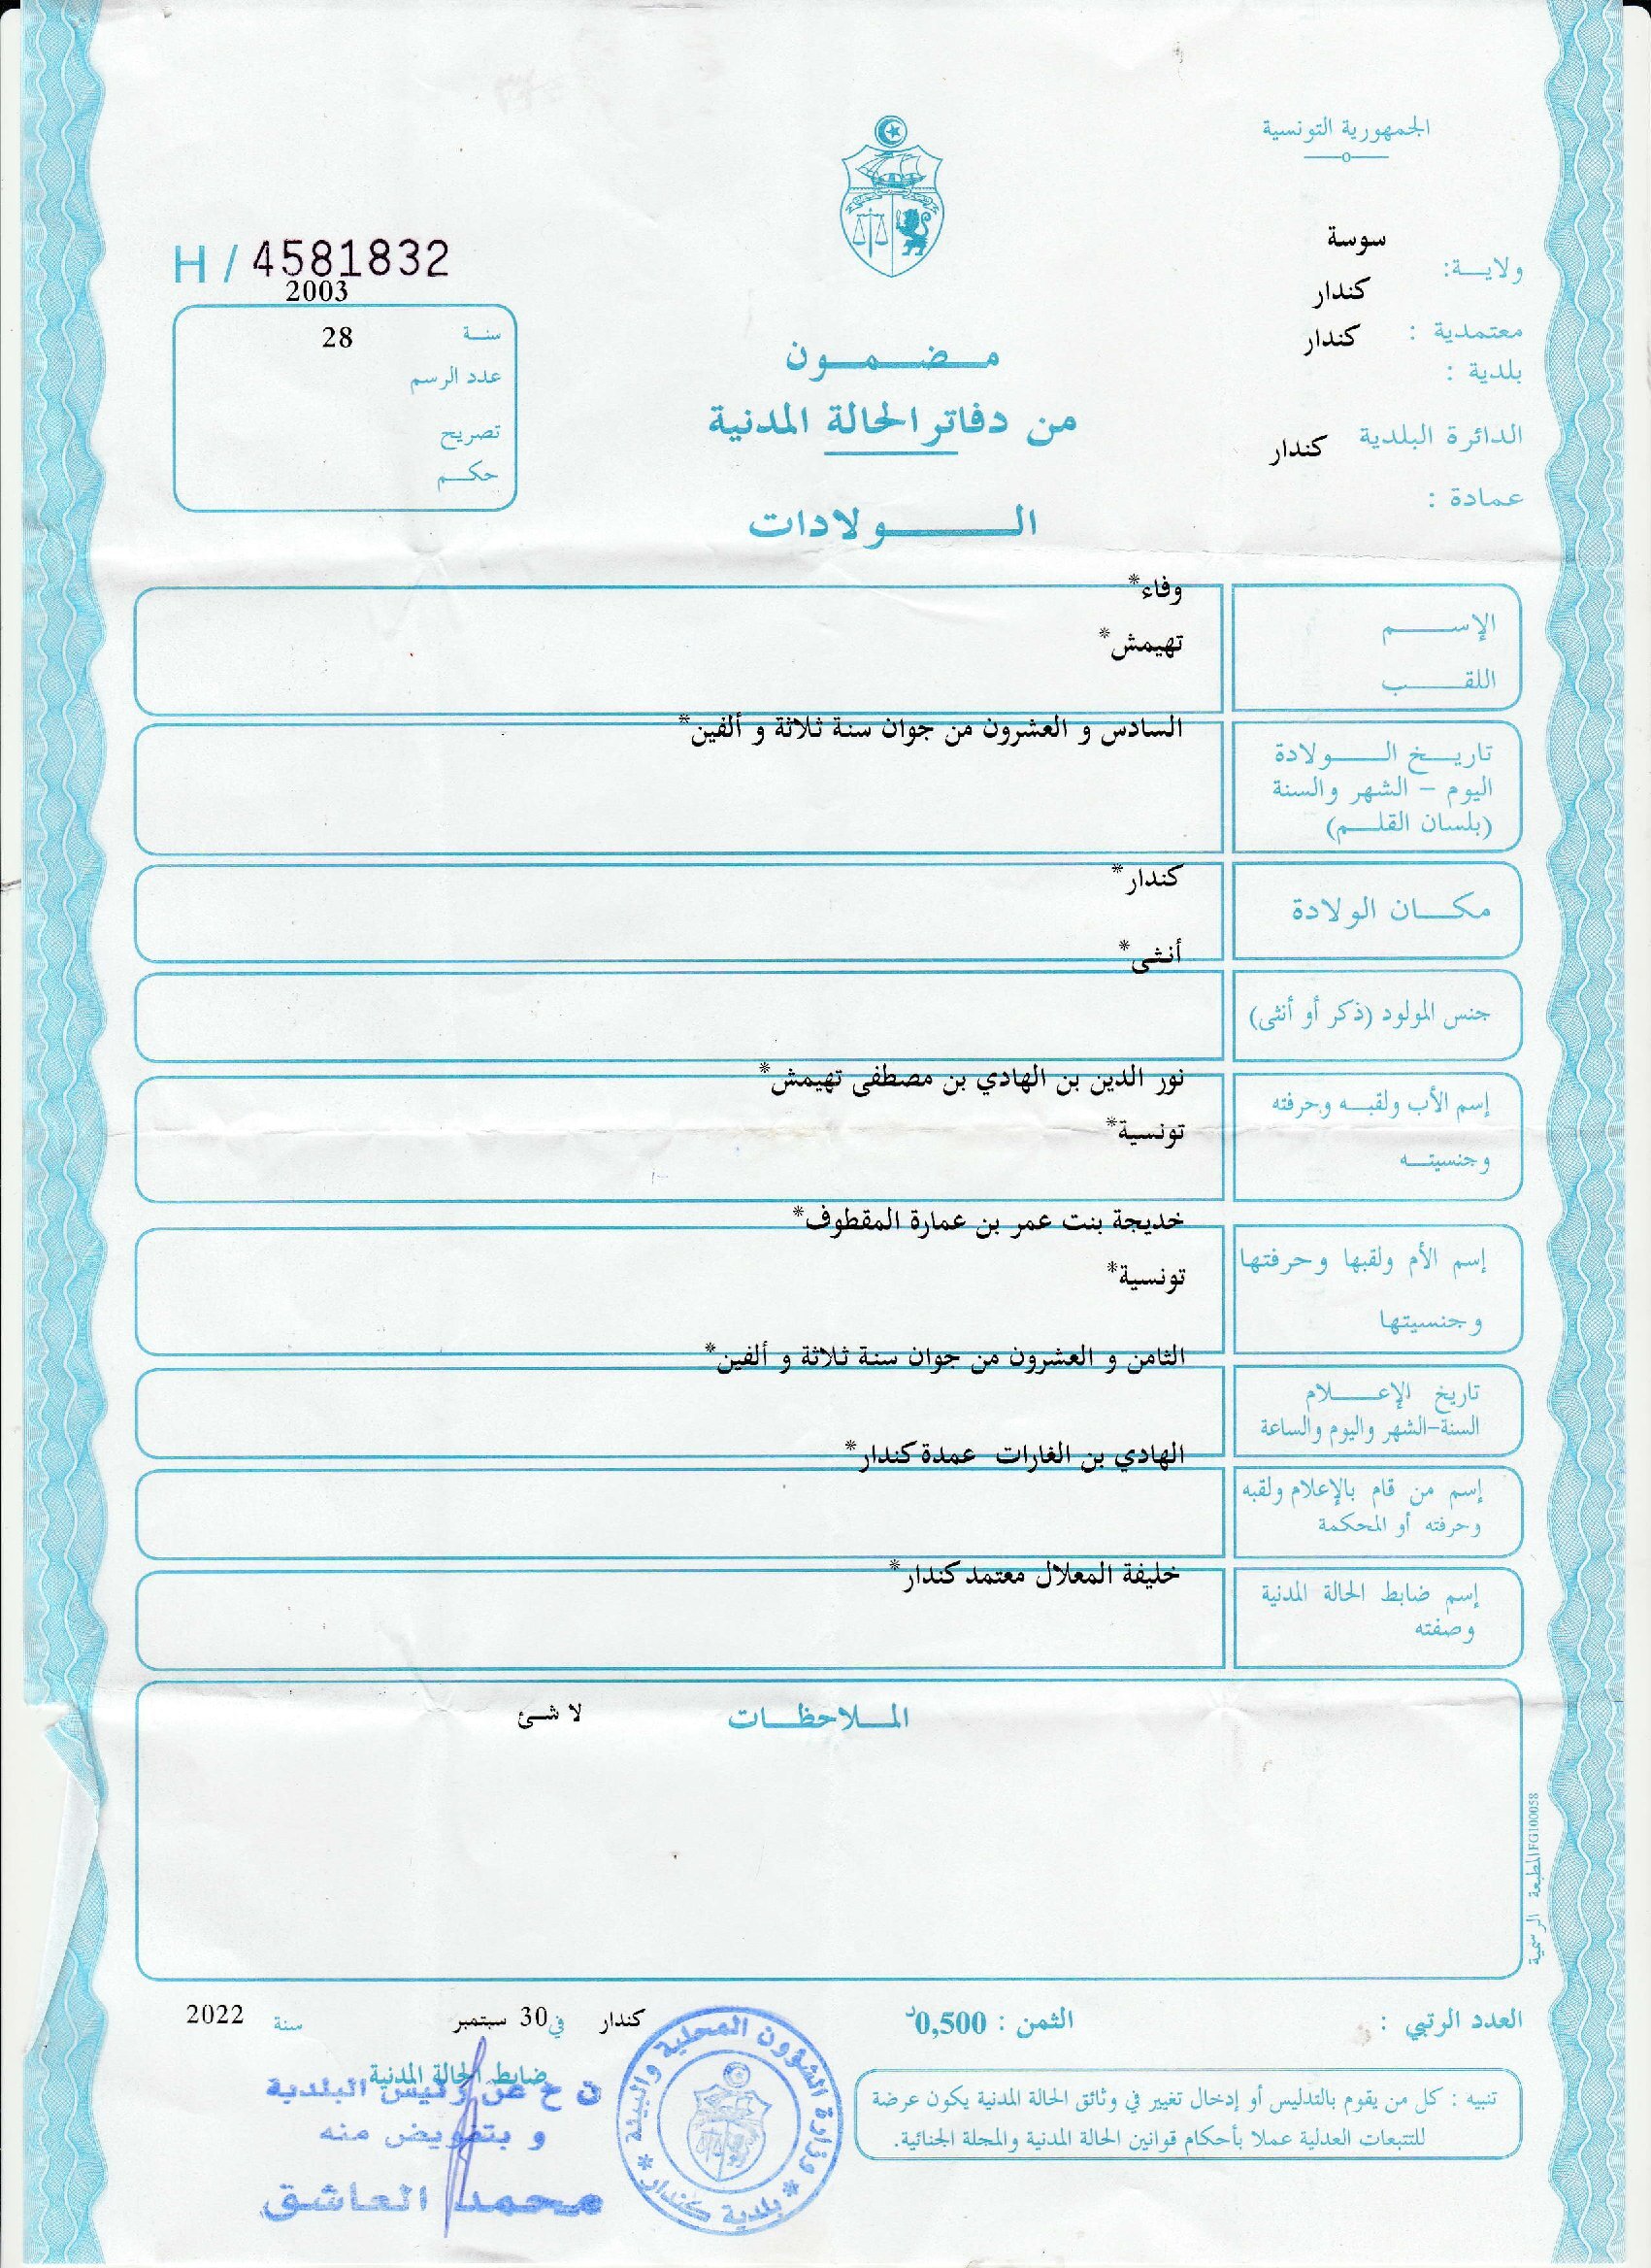 الجمهورية التونسية
ولاية: سوسة
معتمدية : كندار
بلدية : كندار
الدائرة البلدية كندار
عمادة :
H / 4581832
سنة 2003
عدد الرسم 28
تصريح
حكم
مضمون
من دفاتر الحالة المدنية
الولادات
الإسم وفاء*
اللقب تهيمش*
تاريخ الولادة السادس و العشرون من جوان سنة ثلاثة و ألفين*
اليوم - الشهر والسنة
(بلسان القلم)
مكان الولادة كندار*
جنس المولود (ذكر أو أنثى) أنثى*
إسم الأب ولقبه وحرفته نور الدين بن الهادي بن مصطفى تهيمش*
وجنسيته تونسية*
إسم الأم ولقبها وحرفتها خديجة بنت عمر بن عمارة المقطوف*
وجنسيتها تونسية*
تاريخ الإعلام الثامن و العشرون من جوان سنة ثلاثة و ألفين*
السنة-الشهر واليوم والساعة
إسم من قام بالإعلام ولقبه الهادي بن الغارات عمدة كندار*
وحرفته أو المحكمة
إسم ضابط الحالة المدنية خليفة المعلال معتمد كندار*
وصفته
الملاحظات لا شئ
المطبعة الرسمية FG100058
العدد الرتبي :
الثمن : 0,500د
كندار في 30 سبتمبر سنة 2022
تنبيه : كل من يقوم بالتدليس أو إدخال تغيير في وثائق الحالة المدنية يكون عرضة
للتتبعات العدلية عملا بأحكام قوانين الحالة المدنية والمجلة الجنائية.
وزارة الشؤون المحلية والبيئة
* بلدية كندار *
ضابط الحالة المدنية
ن ح عن رئيس البلدية
و بتفويض منه
محمد العاشق